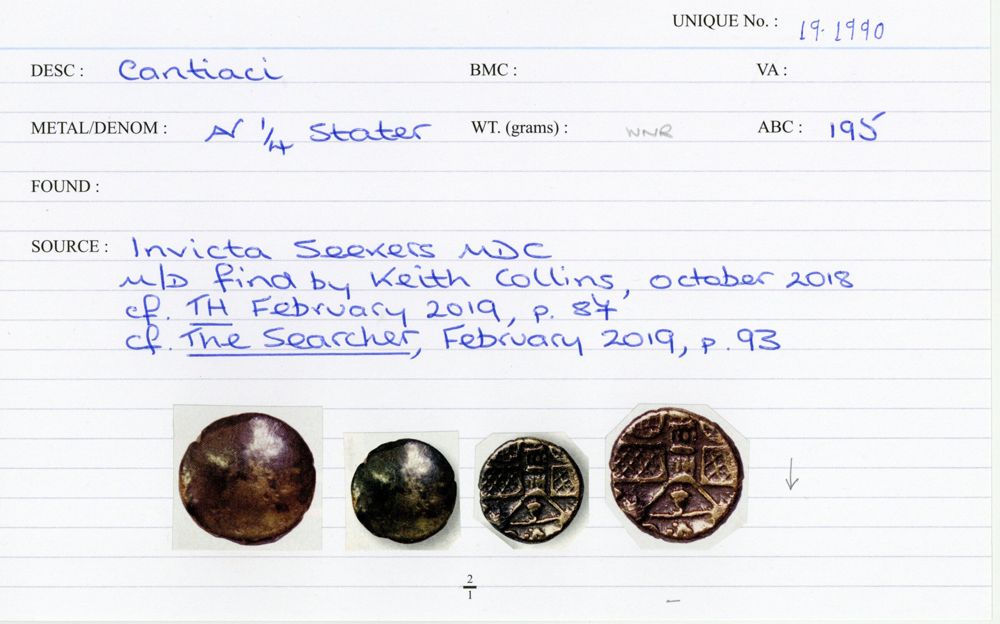 UNIQUE No. : 19.1990
DESC : Cantiaci BMC : VA :
METAL/DENOM : N 1/4 Stater WT. (grams) : WNR ABC : 195
FOUND :
SOURCE : Invicta Seekers MDC
M/D find by Keith Collins, October 2018
cf. TH February 2019, p. 87
cf. The Searcher, February 2019, p. 93
2
1